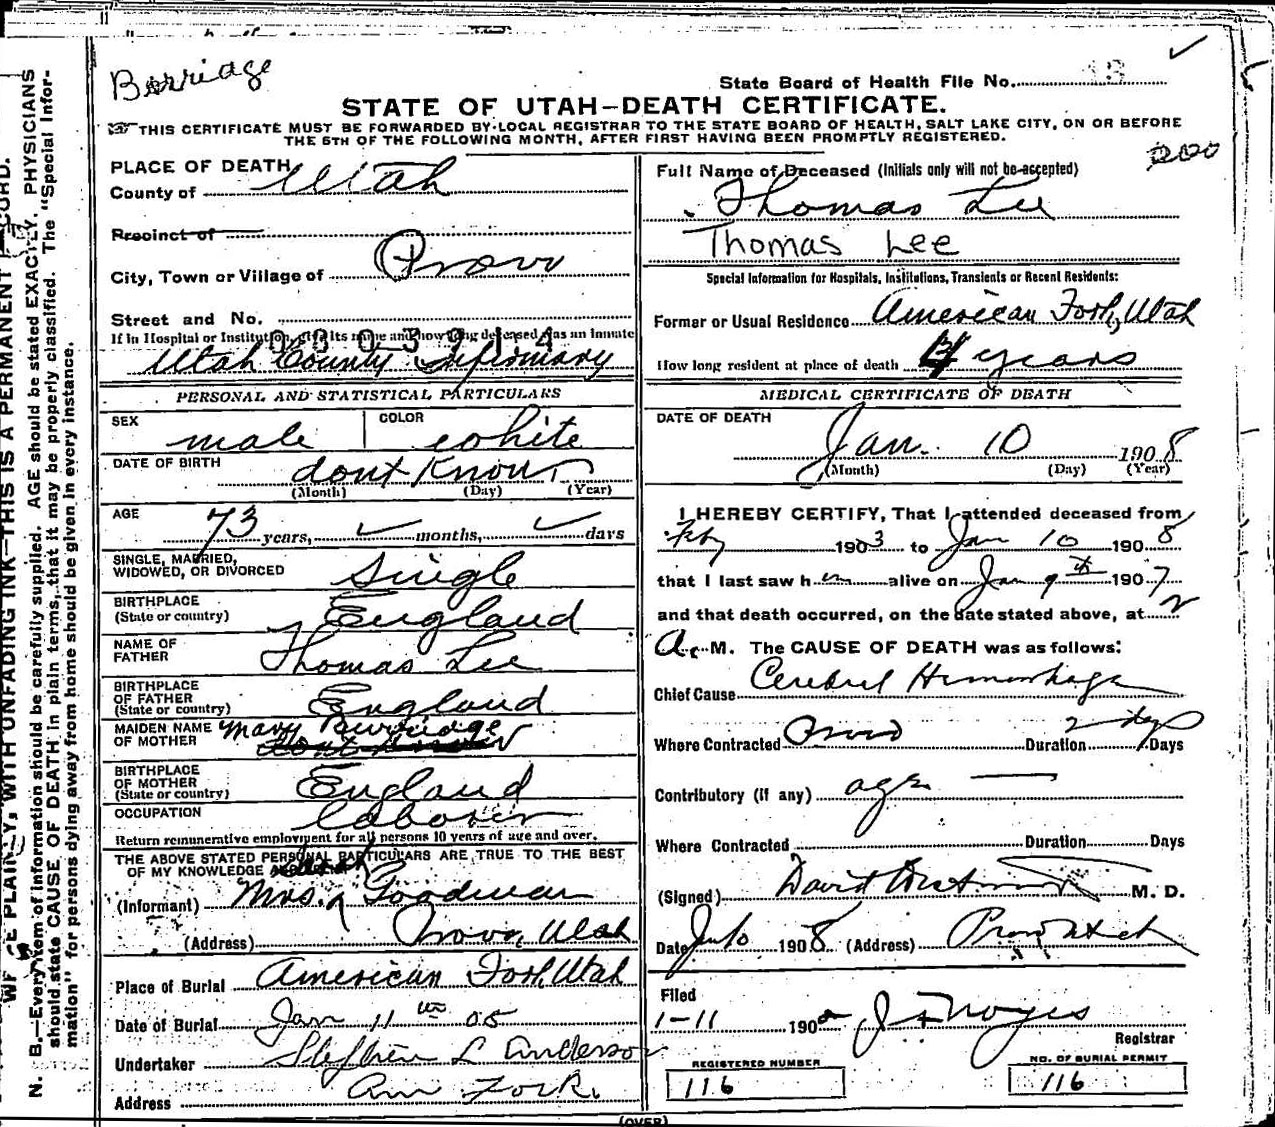 Berriage
State Board of Health File No. 13
STATE OF UTAH—DEATH CERTIFICATE.
THIS CERTIFICATE MUST BE FORWARDED BY LOCAL REGISTRAR TO THE STATE BOARD OF HEALTH, SALT LAKE CITY, ON OR BEFORE
THE 5TH OF THE FOLLOWING MONTH, AFTER FIRST HAVING BEEN PROMPTLY REGISTERED.
200
PLACE OF DEATH
County of Utah
Precinct of
City, Town or Village of Provo
Street and No.
If in Hospital or Institution, give its name and how long deceased was an inmate
Utah County Infirmary
PERSONAL AND STATISTICAL PARTICULARS
SEX male COLOR white
DATE OF BIRTH dont Know
(Month) (Day) (Year)
AGE 73 years, months, days
SINGLE, MARRIED,
WIDOWED, OR DIVORCED Single
BIRTHPLACE
(State or country) England
NAME OF
FATHER Thomas Lee
BIRTHPLACE
OF FATHER
(State or country) England
MAIDEN NAME
OF MOTHER Mary Burridge
BIRTHPLACE
OF MOTHER
(State or country) England
OCCUPATION laborer
Return remunerative employment for all persons 10 years of age and over.
THE ABOVE STATED PERSONAL PARTICULARS ARE TRUE TO THE BEST
OF MY KNOWLEDGE
(Informant) Mrs. Goodman
(Address) Provo, Utah
Place of Burial American Fork, Utah
Date of Burial Jan 11 08
Undertaker Stephen L Anderson
Address Am Fork.
Full Name of Deceased (Initials only will not be accepted)
Thomas Lee
Thomas Lee
Special Information for Hospitals, Institutions, Transients or Recent Residents:
Former or Usual Residence American Fork, Utah
How long resident at place of death 4 years
MEDICAL CERTIFICATE OF DEATH
DATE OF DEATH
Jan. 10 1908
(Month) (Day) (Year)
I HEREBY CERTIFY, That I attended deceased from
Feby 1903 to Jan 10 1908
that I last saw him alive on Jan 9th 1907
and that death occurred, on the date stated above, at 2
A. M. The CAUSE OF DEATH was as follows:
Chief Cause Cerebral Hemorrhage
Where Contracted Provo Duration 2 days Days
Contributory (if any) age
Where Contracted Duration Days
(Signed) David Westwood M. D.
Date 1908 (Address) Provo Utah
Filed
1-11 190 J. F. Noyes
Registrar
REGISTERED NUMBER
116
NO. OF BURIAL PERMIT
116
(OVER)
WRITE PLAINLY, WITH UNFADING INK—THIS IS A PERMANENT RECORD.
N. B.—Every item of information should be carefully supplied. AGE should be stated EXACTLY. PHYSICIANS
should state CAUSE OF DEATH in plain terms, that it may be properly classified. The "Special Infor-
mation" for persons dying away from home should be given in every instance.